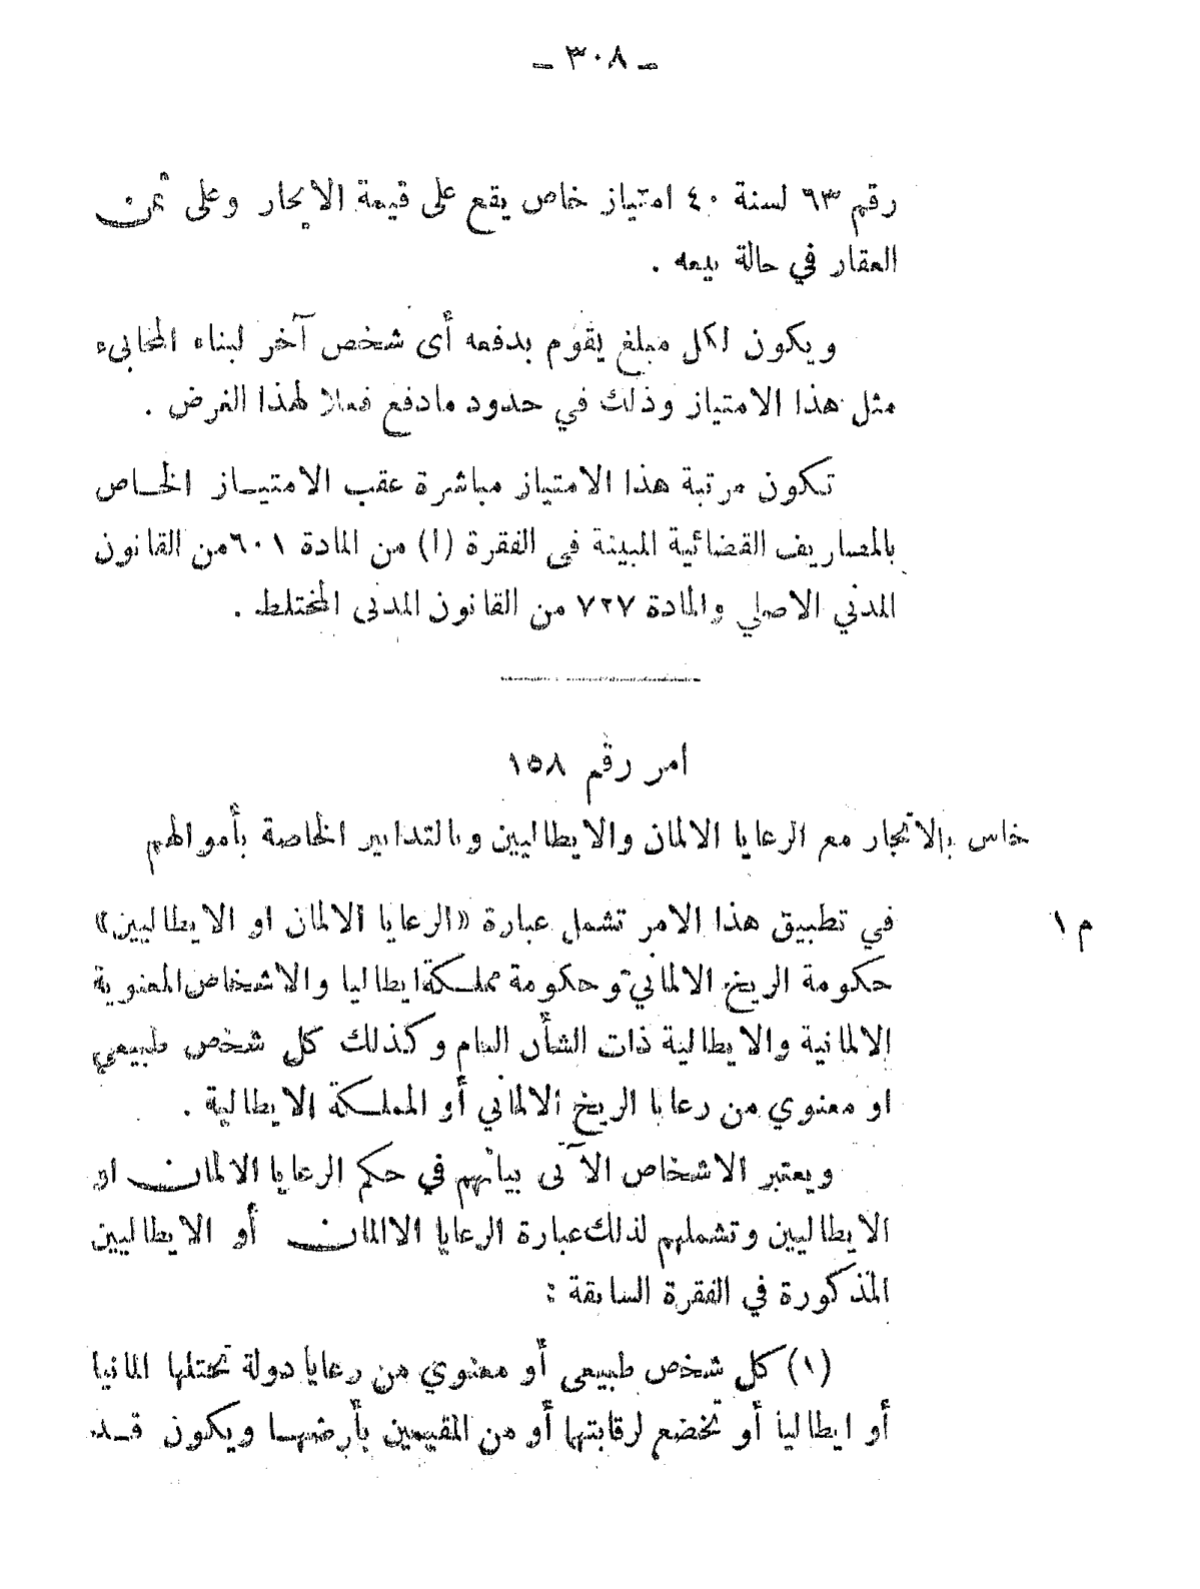 ـ ٣٠٨ ـ
رقم ٦٣ لسنة ٤٠ امتياز خاص يقع على قيمة الايجار وعلى ثمن
العقار في حالة بيعه .
ويكون لكل مبلغ يقوم بدفعه أى شخص آخر لبناء المخابىء
مثل هذا الامتياز وذلك في حدود مادفع فعلا لهذا الغرض .
تكون مرتبة هذا الامتياز مباشرة عقب الامتياز الخاص
بالمصاريف القضائية المبينة فى الفقرة (ا) من المادة ٦٠١ من القانون
المدني الاصلي والمادة ٧٢٧ من القانون المدنى المختلط .
امر رقم ١٥٨
خاس بالاتجار مع الرعايا الالمان والايطاليين وبالتدابير الخاصة بأموالهم
م ١ في تطبيق هذا الامر تشمل عبارة «الرعايا الالمان او الايطاليين»
حكومة الريخ الالماني وحكومة مملكة ايطاليا والاشخاص المعنوية
الالمانية والايطالية ذات الشأن العام وكذلك كل شخص طبيعي
او معنوي من رعايا الريخ الالماني أو المملكة الايطالية .
ويعتبر الاشخاص الآتى بيانهم في حكم الرعايا الالمان او
الايطاليين وتشملهم لذلك عبارة الرعايا الاالمان أو الايطاليين
المذكورة في الفقرة السابقة :
(١) كل شخص طبيعى أو معنوي من رعايا دولة تحتلها المانيا
أو ايطاليا أو تخضع لرقابتها أو من المقيمين بأرضها ويكون قد